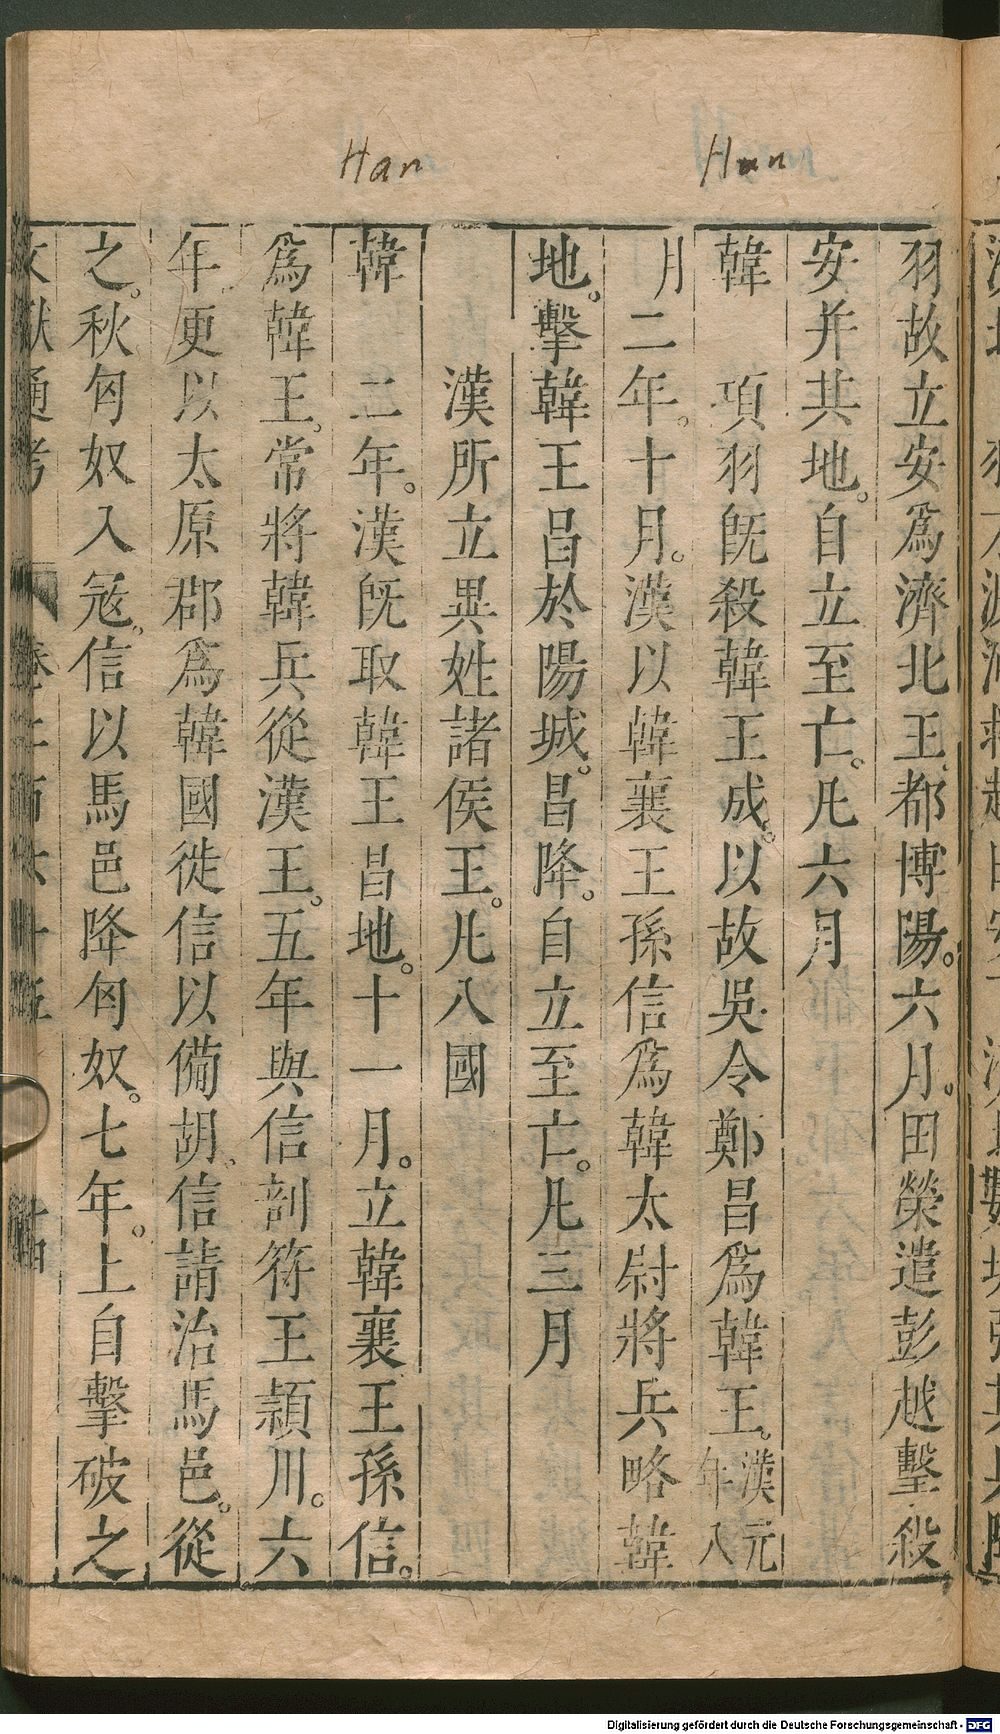 Han
Han
羽故立安爲濟北王都博陽。六月。田榮遣彭越擊殺
安并其地。自立至亡。凡六月
韓　項羽旣殺韓王成。以故吳令鄭昌爲韓王。漢元年八
月二年。十月。漢以韓襄王孫信爲韓太尉將兵略韓
地。擊韓王昌於陽城。昌降。自立至亡。凡三月
漢所立異姓諸侯王。凡八國
韓　二年。漢旣取韓王昌地。十一月。立韓襄王孫信。
爲韓王。常將韓兵從漢王。五年與信剖符王潁川。六
年更以太原郡爲韓國徙信以備胡。信請治馬邑。從
之。秋匈奴入寇。信以馬邑降匈奴。七年。上自擊破之
文獻通考
卷二百六十五
十四
Digitalisierung gefördert durch die Deutsche Forschungsgemeinschaft - DFG